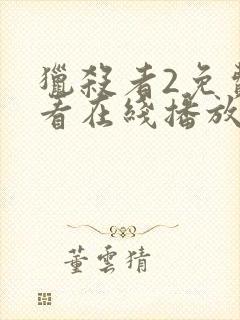 獵殺者2免費
者在綫播放
董雲猜